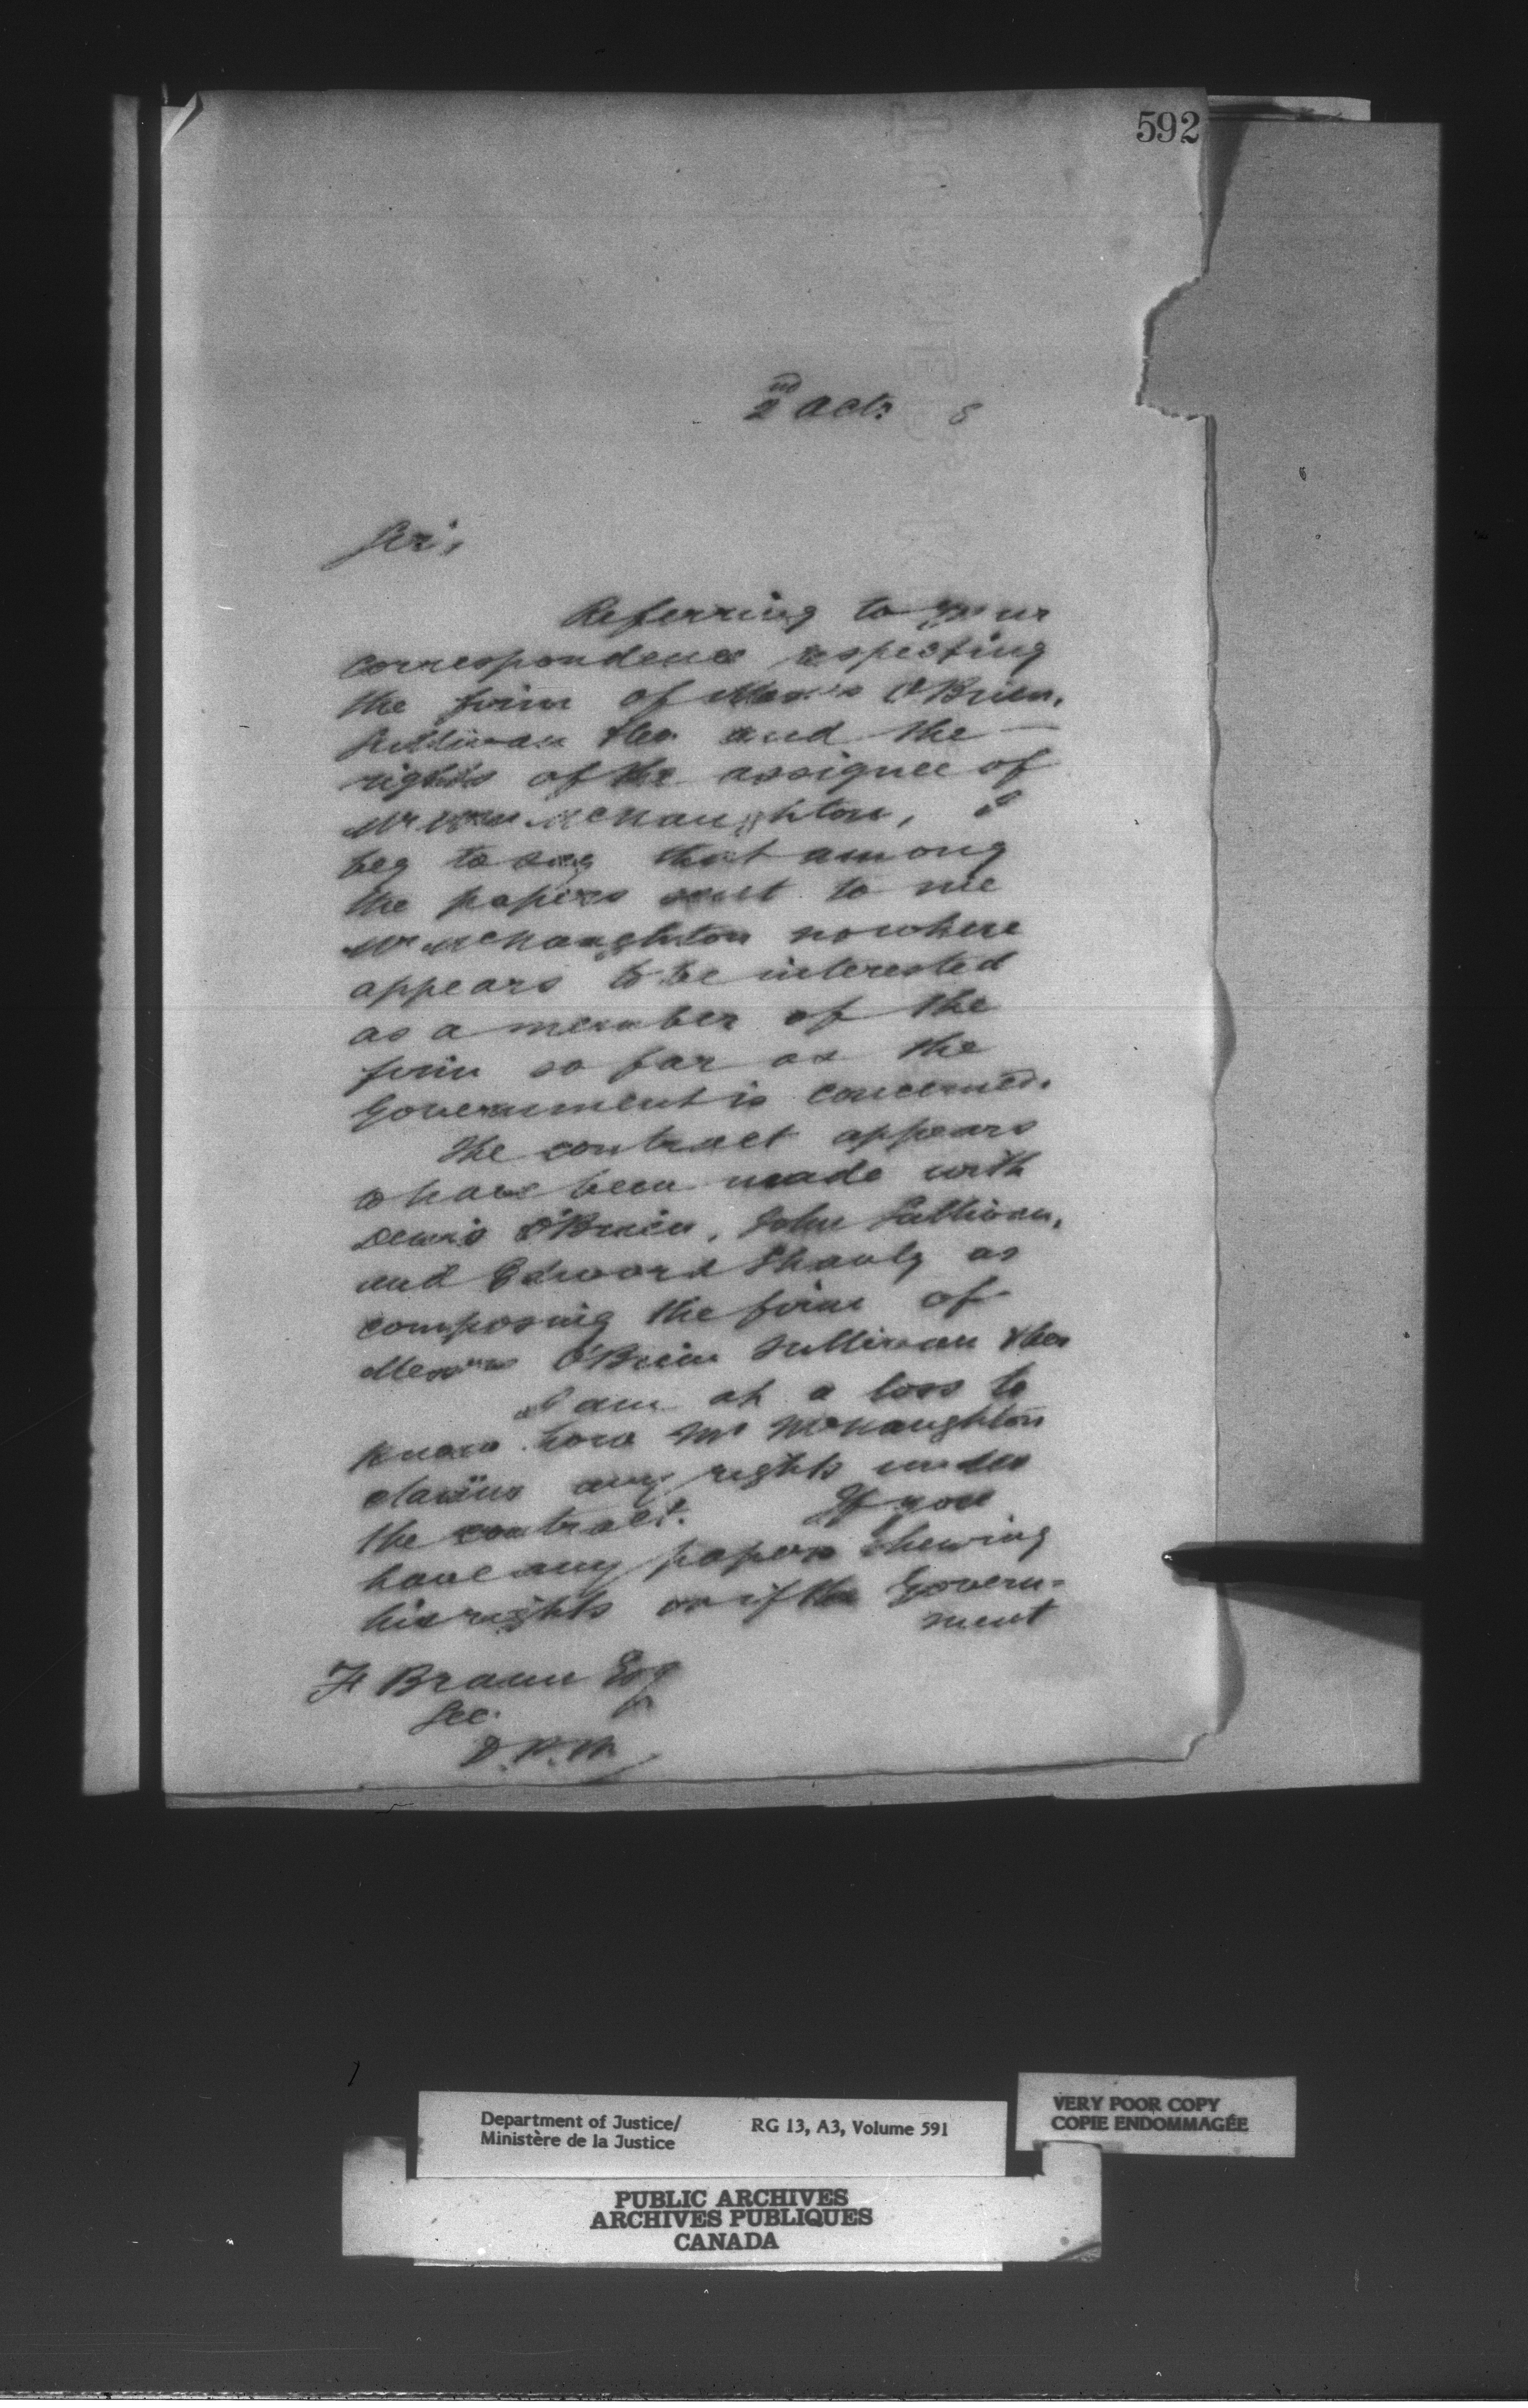 592
2nd Oct. 8
Sir,
Referring to your
correspondence respecting
the firm of Messrs O'Brien,
Sullivan & Co and the
rights of the assignee of
Mr Wm McNaughton, I
beg to say that among
the papers sent to me
Mr McNaughton nowhere
appears to be interested
as a member of the
firm so far as the
Government is concerned.
The contract appears
to have been made with
Denis O'Brien, John Sullivan,
and Edward Shanly as
composing the firm of
Messrs O'Brien Sullivan & Co
I am at a loss to
know how Mr McNaughton
claims any rights under
the contract. If you
have any papers shewing
his rights or if the Govern-
ment
F Braun Esq
Sec.
D.P.W.
Department of Justice/ RG 13, A3, Volume 591
Ministère de la Justice
VERY POOR COPY
COPIE ENDOMMAGÉE
PUBLIC ARCHIVES
ARCHIVES PUBLIQUES
CANADA